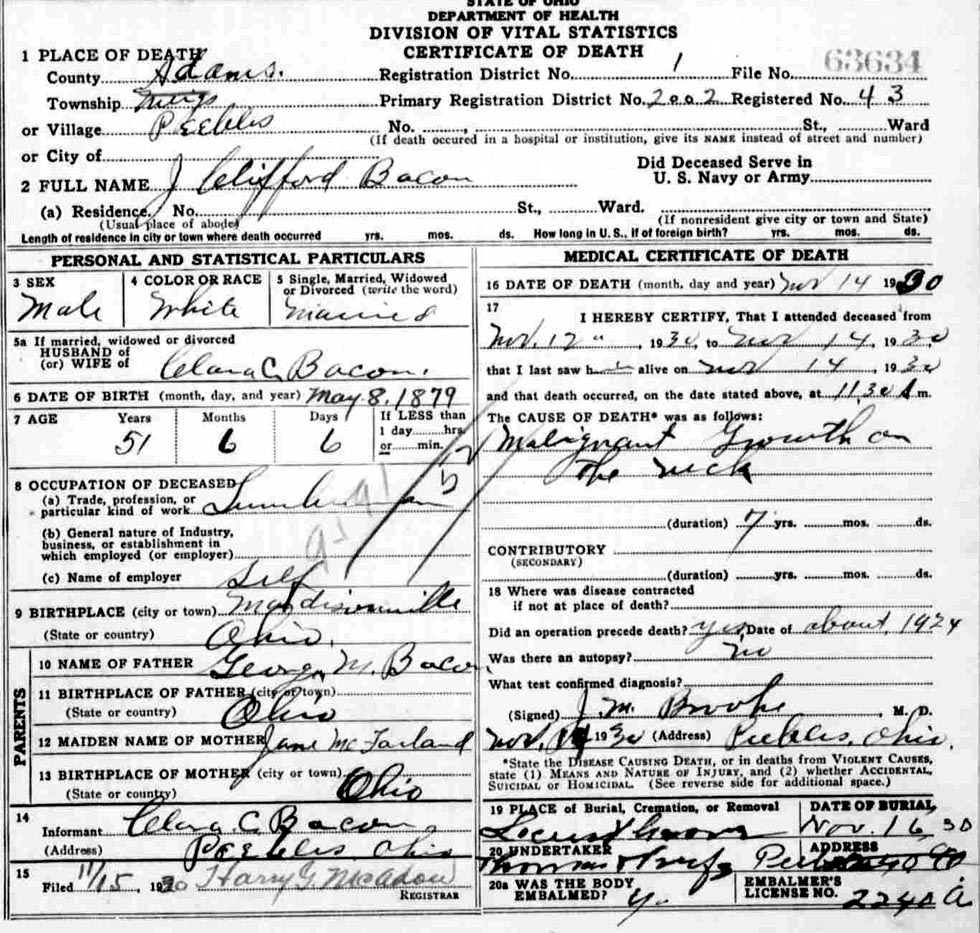 STATE OF OHIO
DEPARTMENT OF HEALTH
DIVISION OF VITAL STATISTICS
CERTIFICATE OF DEATH
1 PLACE OF DEATH
County Adams. Registration District No. 1 File No. 63634
Township Meigs Primary Registration District No. 2002 Registered No. 43
or Village Peebles No. St., Ward
(If death occured in a hospital or institution, give its NAME instead of street and number)
or City of
2 FULL NAME J Clifford Bacon Did Deceased Serve in U. S. Navy or Army
(a) Residence. No. St., Ward.
(Usual place of abode) (If nonresident give city or town and State)
Length of residence in city or town where death occurred yrs. mos. ds. How long in U. S., if of foreign birth? yrs. mos. ds.
PERSONAL AND STATISTICAL PARTICULARS
3 SEX 4 COLOR OR RACE 5 Single, Married, Widowed or Divorced (write the word)
Male White Married
5a If married, widowed or divorced
HUSBAND of
(or) WIFE of Clara C. Bacon.
6 DATE OF BIRTH (month, day, and year) May 8. 1879
7 AGE Years Months Days If LESS than
1 day hrs.
or min.
51 6 6
8 OCCUPATION OF DECEASED
(a) Trade, profession, or
particular kind of work
(b) General nature of Industry,
business, or establishment in
which employed (or employer)
(c) Name of employer Self
9 BIRTHPLACE (city or town) Madisonville
(State or country) Ohio.
PARENTS
10 NAME OF FATHER George M. Bacon
11 BIRTHPLACE OF FATHER (city or town)
(State or country) Ohio
12 MAIDEN NAME OF MOTHER Jane McFarland
13 BIRTHPLACE OF MOTHER (city or town)
(State or country) Ohio
14
Informant Clara C. Bacon
(Address) Peebles Ohio
15
Filed 11/15, 1930 Harry G. McAdow
REGISTRAR
MEDICAL CERTIFICATE OF DEATH
16 DATE OF DEATH (month, day and year) Nov 14 1930
17
I HEREBY CERTIFY, That I attended deceased from
Nov. 12, 1930, to Nov 14, 1930
that I last saw h alive on Nov 14, 1930
and that death occurred, on the date stated above, at 11,30 A m.
The CAUSE OF DEATH* was as follows:
Malignant Growth on
the neck
(duration) 7 yrs. mos. ds.
CONTRIBUTORY
(SECONDARY)
(duration) yrs. mos. ds.
18 Where was disease contracted
if not at place of death?
Did an operation precede death? yes Date of about, 1924
Was there an autopsy? no
What test confirmed diagnosis?
(Signed) J. M. Brooke M. D.
Nov. 1930 (Address) Peebles, Ohio.
*State the DISEASE CAUSING DEATH, or in deaths from VIOLENT CAUSES,
state (1) MEANS AND NATURE OF INJURY, and (2) whether ACCIDENTAL,
SUICIDAL or HOMICIDAL. (See reverse side for additional space.)
19 PLACE of Burial, Cremation, or Removal DATE OF BURIAL
Locust Grove Nov. 16, 30
20 UNDERTAKER ADDRESS
Thomas
20a WAS THE BODY
EMBALMED?
EMBALMER'S
LICENSE NO. 2240 A